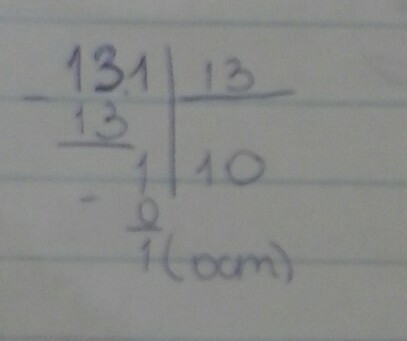 131 13
- 13
1 10
- 0
1 (ocm)